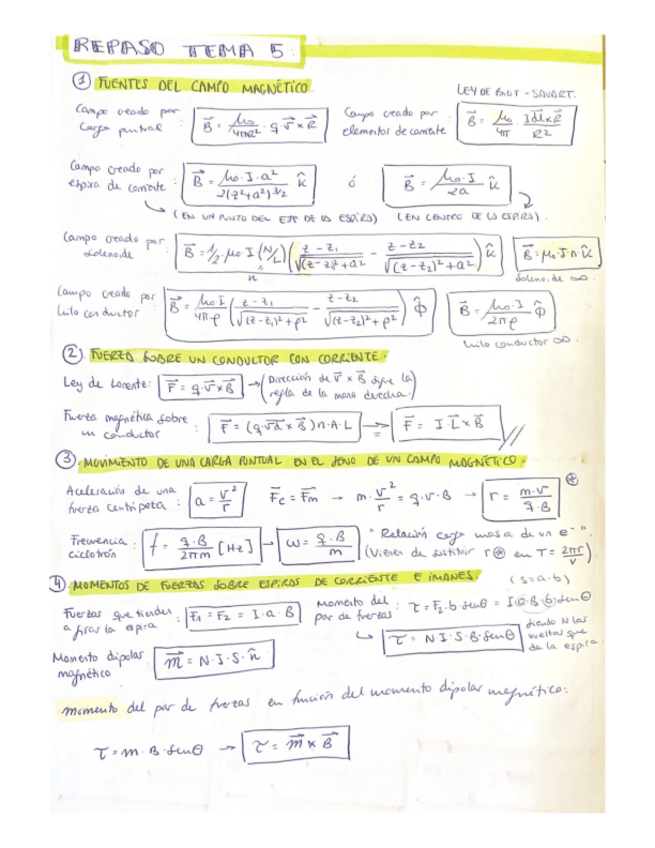 REPASO TEMA 5.
① FUENTES DEL CAMPO MAGNÉTICO.
LEY DE BIOT - SAVART.
Campo creado por carga puntual : B⃗ = μ₀/4πR² · q · v⃗ × R⃗
Campo creado por elementos de corriente : B⃗ = μ₀/4π · I dl⃗ × R⃗ / R²
Campo creado por espira de corriente : B⃗ = μ₀ · I · a² / 2(z²+a²)^3/2 k̂ ó B⃗ = μ₀ · I / 2a k̂
(EN UN PUNTO DEL EJE DE LA ESPIRA) (EN CENTRO DE LA ESPIRA).
Campo creado por solenoide : B⃗ = 1/2 · μ₀ I (N/L) (z - z₁ / √(z - z₁)² + a² - z - z₂ / √(z - z₂)² + a²) k̂ B⃗ = μ₀ · I · n · k̂
n
Solenoide ∞.
Campo creado por hilo conductor : B⃗ = μ₀ I / 4πρ (z - z₁ / √(z - z₁)² + ρ² - z - z₂ / √(z - z₂)² + ρ²) Φ̂ B⃗ = μ₀ · I / 2πρ Φ̂
hilo conductor ∞.
② FUERZA SOBRE UN CONDUCTOR CON CORRIENTE.
Ley de Lorentz: F⃗ = q · v⃗ × B⃗ → (Dirección de v⃗ × B⃗ sigue la regla de la mano derecha.)
Fuerza magnética sobre un conductor : F⃗ = (q v⃗d × B⃗) n · A · L → = F⃗ = I · L⃗ × B⃗ //
③ MOVIMIENTO DE UNA CARGA PUNTUAL EN EL SENO DE UN CAMPO MAGNÉTICO.
Aceleración de una fuerza centrípeta : a = v²/r F⃗c = F⃗m → m · v²/r = q · v · B → r = m · v / q · B ⊛
Frecuencia ciclotrón : f = q · B / 2πm [Hz] → ω = q · B / m
"Relación carga masa de un e⁻".
(Vienen de sustituir r⊛ en T = 2πr/v).
4 MOMENTOS DE FUERZAS SOBRE ESPIRAS DE CORRIENTE E IMANES.
(S = a · b)
Fuerzas que tienden a girar la espira : F₁ = F₂ = I · a · B
Momento del par de fuerzas : τ = F₂ · b · senθ = I · a · B · b · senθ
↳ τ = N I · S · B · senθ
siendo N las vueltas que da la espira.
Momento dipolar magnético : m⃗ = N · I · S · n̂
Momento del par de fuerzas en función del momento dipolar magnético:
τ = m · B · senθ → τ = m⃗ × B⃗